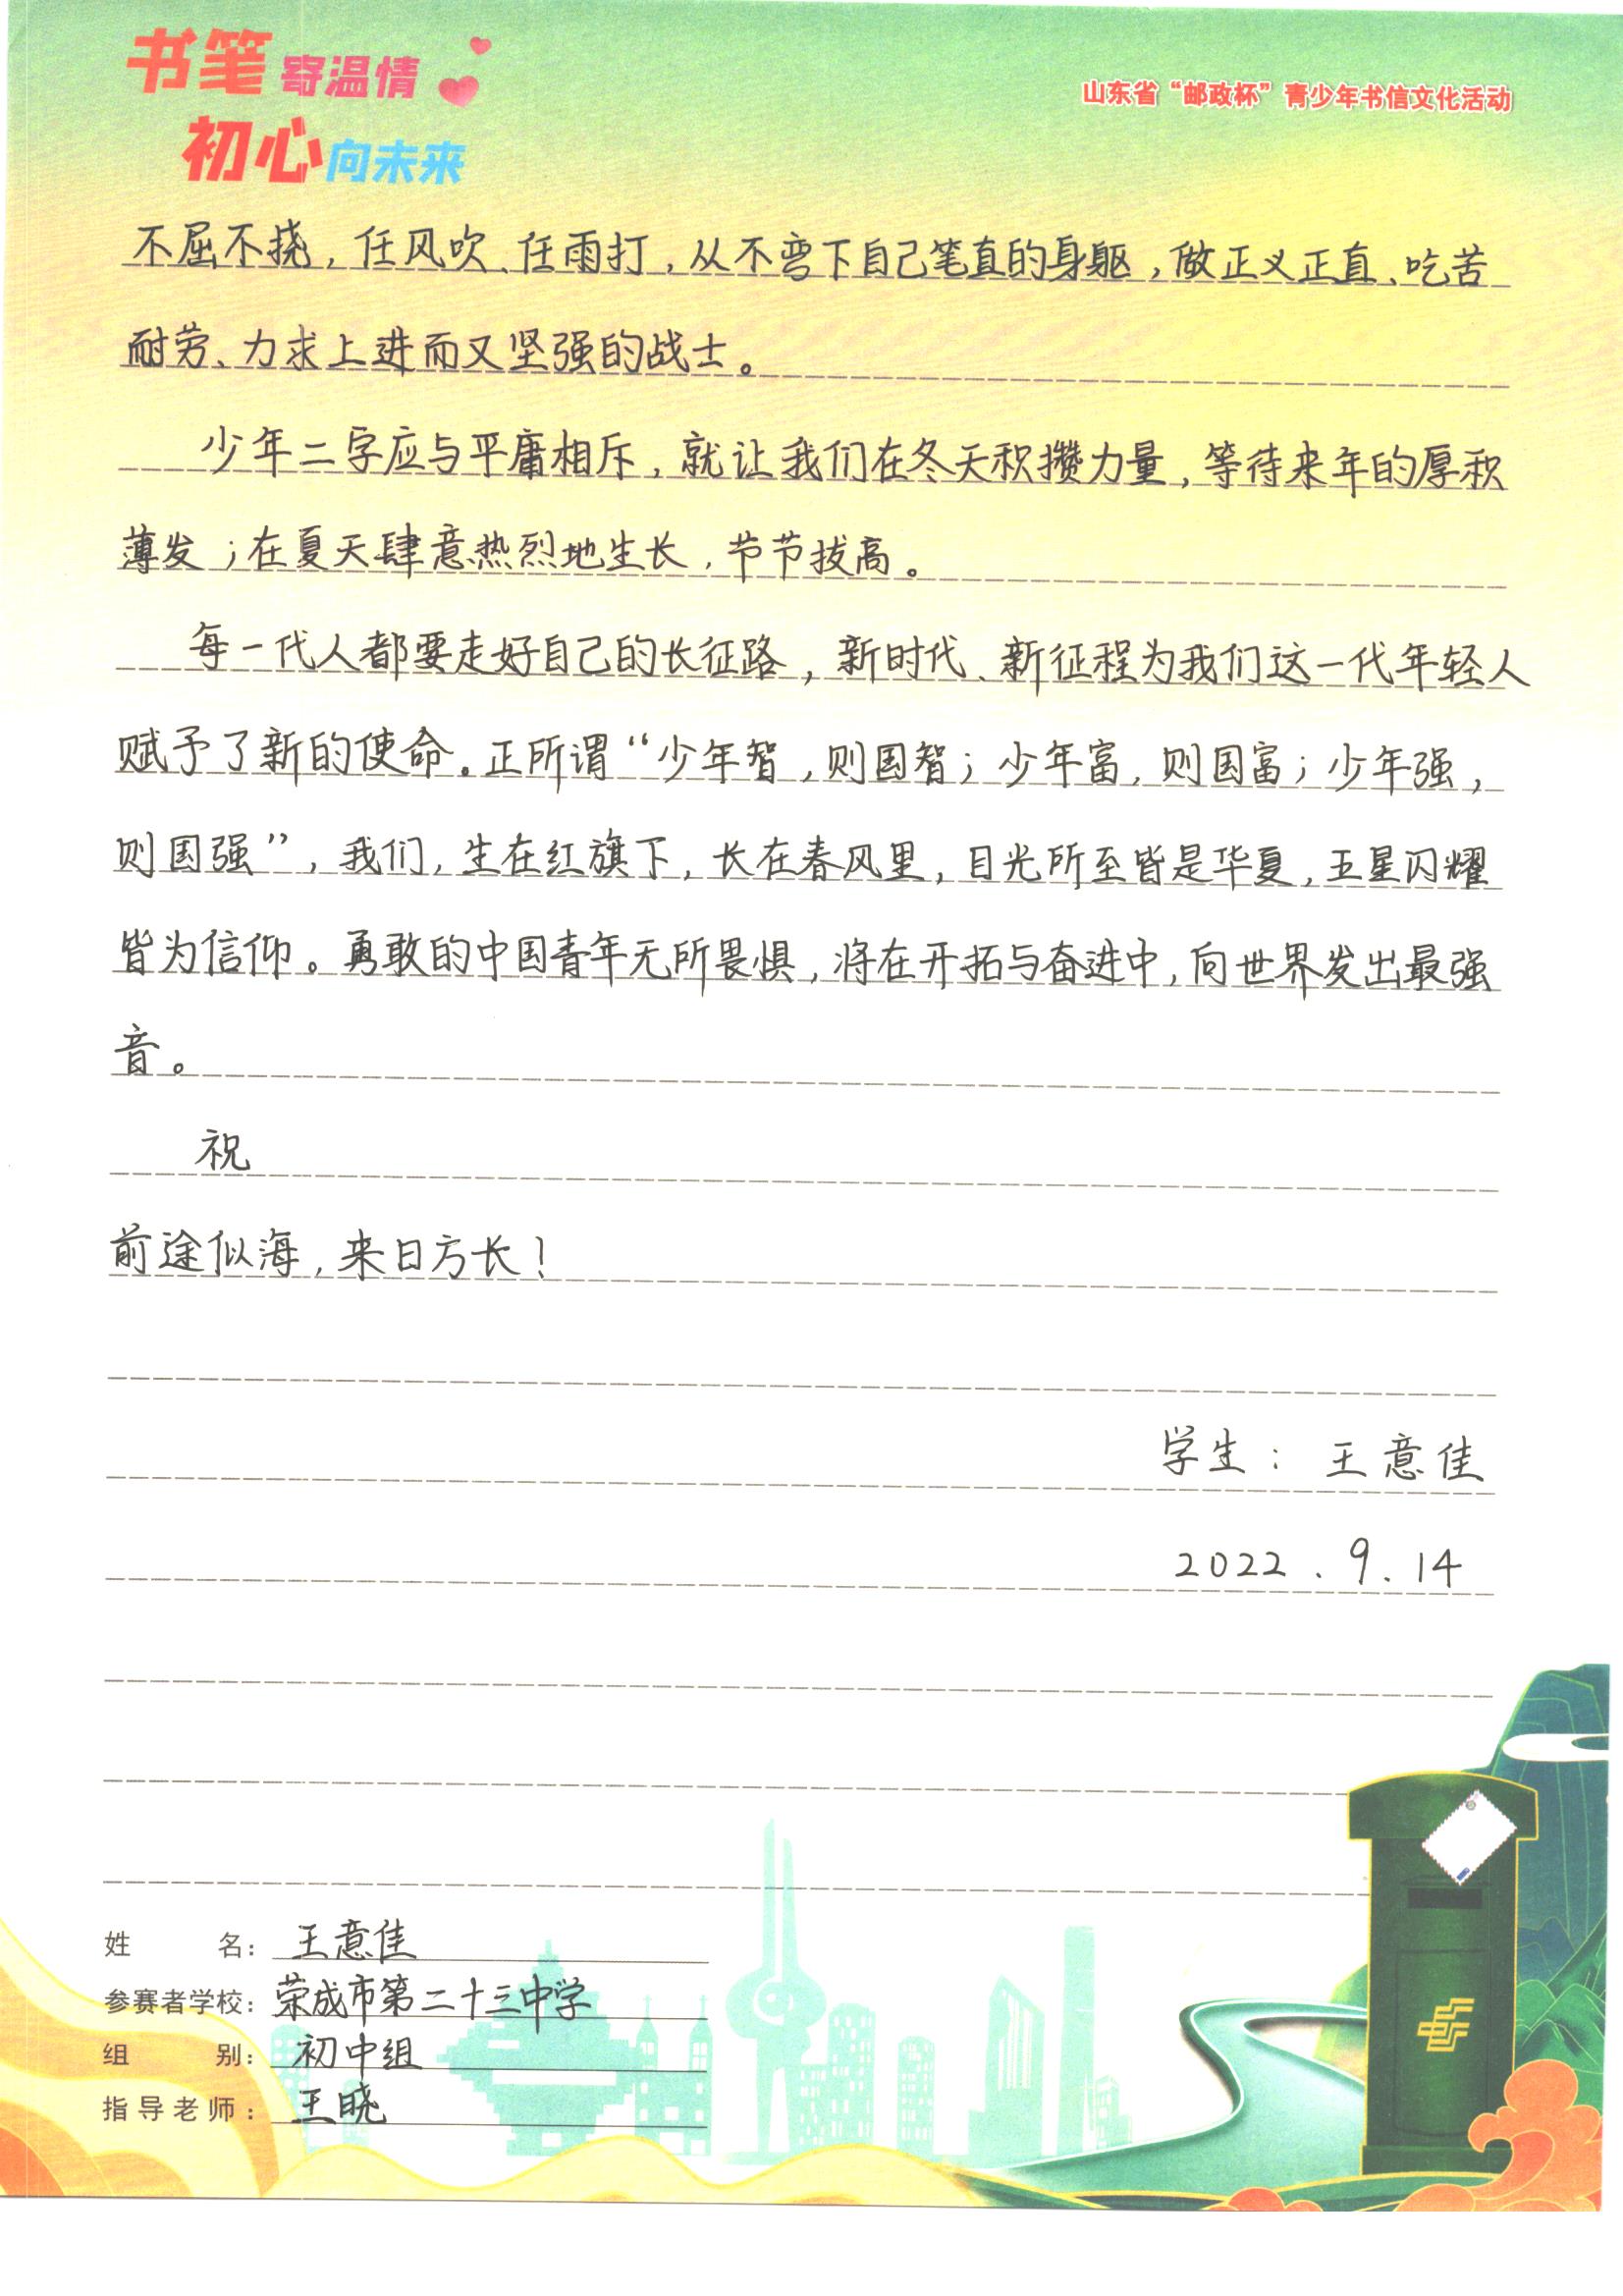 书笔寄温情
初心向未来
山东省“邮政杯”青少年书信文化活动
不屈不挠，任风吹、任雨打，从不弯下自己笔直的身躯，做正义正直、吃苦
耐劳、力求上进而又坚强的战士。
少年二字应与平庸相斥，就让我们在冬天积攒力量，等待来年的厚积
薄发；在夏天肆意热烈地生长，节节拔高。
每一代人都要走好自己的长征路，新时代、新征程为我们这一代年轻人
赋予了新的使命。正所谓“少年智，则国智；少年富，则国富；少年强，
则国强”，我们，生在红旗下，长在春风里，目光所至皆是华夏，五星闪耀
皆为信仰。勇敢的中国青年无所畏惧，将在开拓与奋进中，向世界发出最强
音。
祝
前途似海，来日方长！
学生：王意佳
2022.9.14
姓名：王意佳
参赛者学校：荣成市第二十三中学
组别：初中组
指导老师：王晓